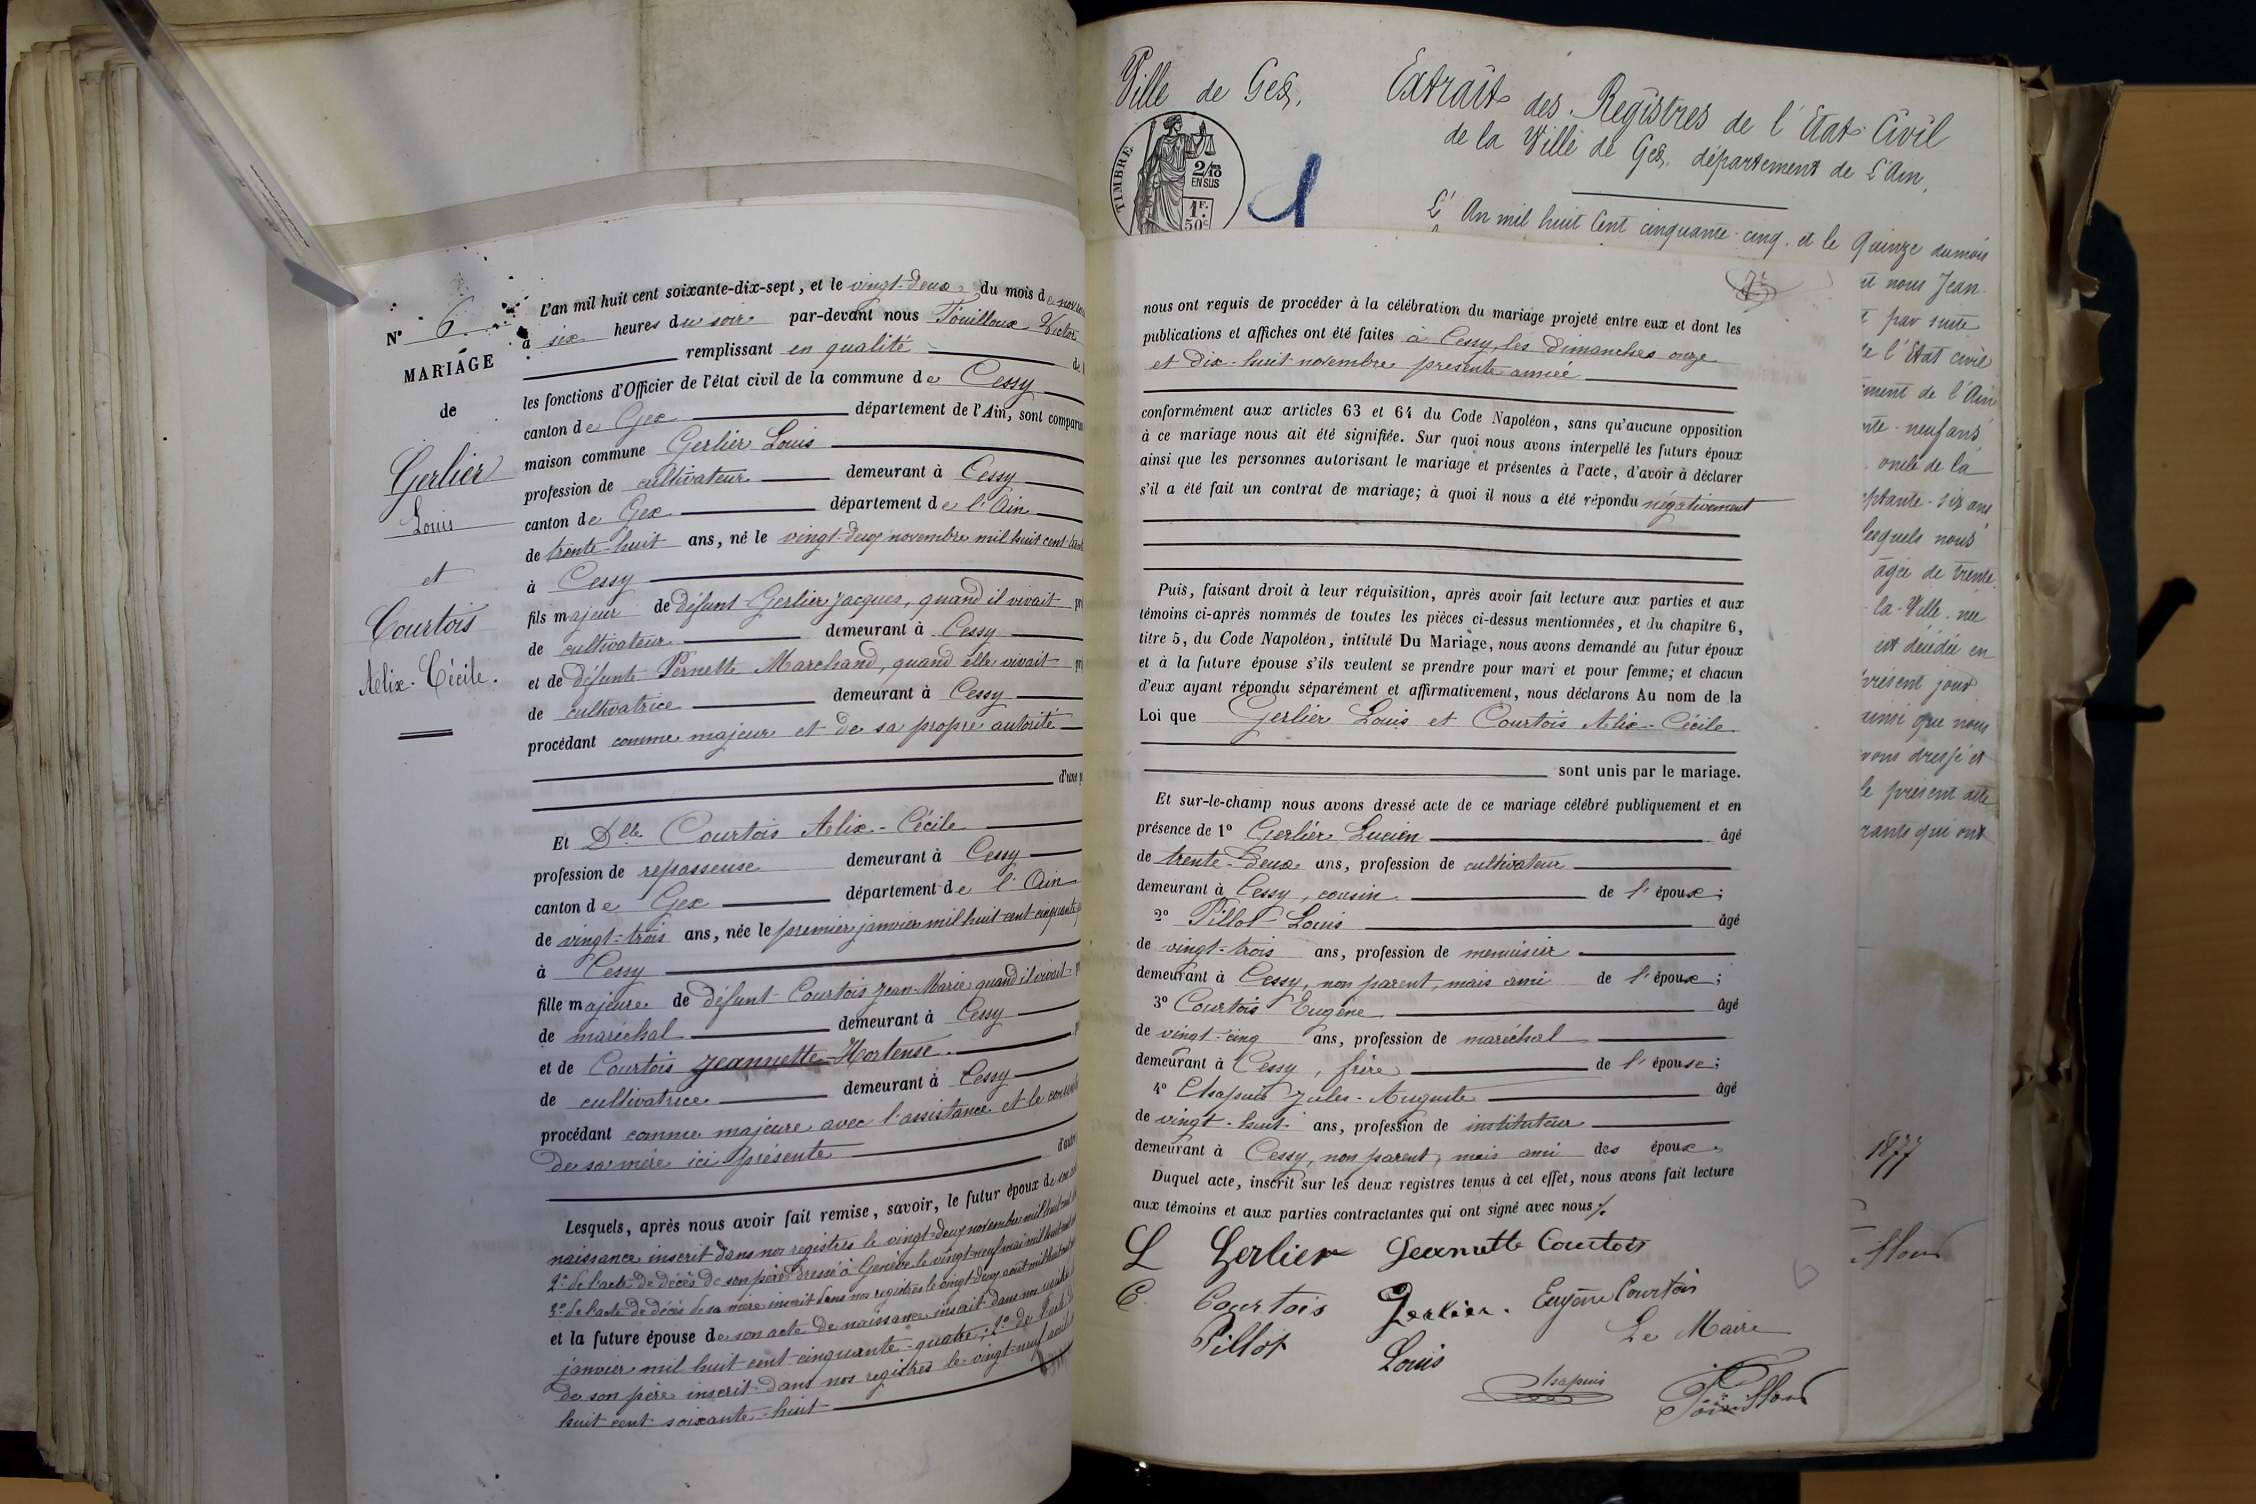 N° 6
MARIAGE
de
Gerlier
Louis
et
Courtois
Alix-Cécile.
L'an mil huit cent soixante-dix-sept, et le vingt-deux du mois de
à six heures du soir par-devant nous Touilloux Victor
remplissant en qualité
les fonctions d'Officier de l'état civil de la commune de Cessy
canton de Gex département de l'Ain, sont comparus
maison commune Gerlier Louis
profession de cultivateur demeurant à Cessy
canton de Gex département de l'Ain
de trente-huit ans, né le vingt-deux novembre mil huit cent
à Cessy
fils majeur de défunt Gerlier Jacques, quand il vivait
de cultivateur demeurant à Cessy
et de défunte Pernette Marchand, quand elle vivait
de cultivatrice demeurant à Cessy
procédant comme majeur et de sa propre autorité
d'une
Et Dlle Courtois Alix-Cécile
profession de repasseuse demeurant à Cessy
canton de Gex département de l'Ain
de vingt-trois ans, née le premier janvier mil huit cent cinquante
à Cessy
fille majeure de défunt Courtois Jean-Marie quand il vivait
de maréchal demeurant à Cessy
et de Courtois Jeannette-Hortense.
de cultivatrice demeurant à Cessy
procédant comme majeure avec l'assistance et le
de sa mère ici présente
Lesquels, après nous avoir fait remise, savoir, le futur époux de
naissance inscrit dans nos registres le vingt-deux novembre mil huit
2° de l'acte de décès de son père dressé à Genève le vingt-neuf mai mil huit
3° de l'acte de décès de sa mère inscrit dans nos registres le vingt-deux août mil huit
et la future épouse de son acte de naissance inscrit dans nos
janvier mil huit cent cinquante-quatre; 2° de
de son père inscrit dans nos registres le vingt-neuf août
huit cent soixante-huit
Ville de Gex.
TIMBRE
2/10
EN SUS
1F.
50c
1
Extrait des Registres de l'Etat Civil
de la Ville de Gex, département de L'Ain.
L'An mil huit Cent cinquante-cinq et le Quinze du mois
nous ont requis de procéder à la célébration du mariage projeté entre eux et dont les
publications et affiches ont été faites à Cessy, les dimanches onze
et dix-huit novembre présente année
conformément aux articles 63 et 64 du Code Napoléon, sans qu'aucune opposition
à ce mariage nous ait été signifiée. Sur quoi nous avons interpellé les futurs époux
ainsi que les personnes autorisant le mariage et présentes à l'acte, d'avoir à déclarer
s'il a été fait un contrat de mariage; à quoi il nous a été répondu négativement
Puis, faisant droit à leur réquisition, après avoir fait lecture aux parties et aux
témoins ci-après nommés de toutes les pièces ci-dessus mentionnées, et du chapitre 6,
titre 5, du Code Napoléon, intitulé Du Mariage, nous avons demandé au futur époux
et à la future épouse s'ils veulent se prendre pour mari et pour femme; et chacun
d'eux ayant répondu séparément et affirmativement, nous déclarons Au nom de la
Loi que Gerlier Louis et Courtois Alix-Cécile
sont unis par le mariage.
Et sur-le-champ nous avons dressé acte de ce mariage célébré publiquement et en
présence de 1° Gerlier Lucien âgé
de trente-deux ans, profession de cultivateur
demeurant à Cessy, cousin de l'époux;
2° Pillot Louis âgé
de vingt-trois ans, profession de menuisier
demeurant à Cessy, non parent, mais ami de l'époux;
3° Courtois Eugène âgé
de vingt-cinq ans, profession de maréchal
demeurant à Cessy, frère de l'épouse;
4° Chapuis Jules-Auguste âgé
de vingt-huit ans, profession de instituteur
demeurant à Cessy, non parent, mais ami des époux.
Duquel acte, inscrit sur les deux registres tenus à cet effet, nous avons fait lecture
aux témoins et aux parties contractantes qui ont signé avec nous
L Gerlier Jeannette Courtois
C. Courtois Gerlier. Eugène Courtois
Pillot Louis Le Maire
Chapuis
nous Jean
par suite
l'Etat civil
de l'Ain
neuf ans
oncle de la
six ans
lesquels nous
agée de trente
la Ville, née
est décédée en
présent jour
ainsi que nous
avons dressé et
le présent acte
qui ont
1877